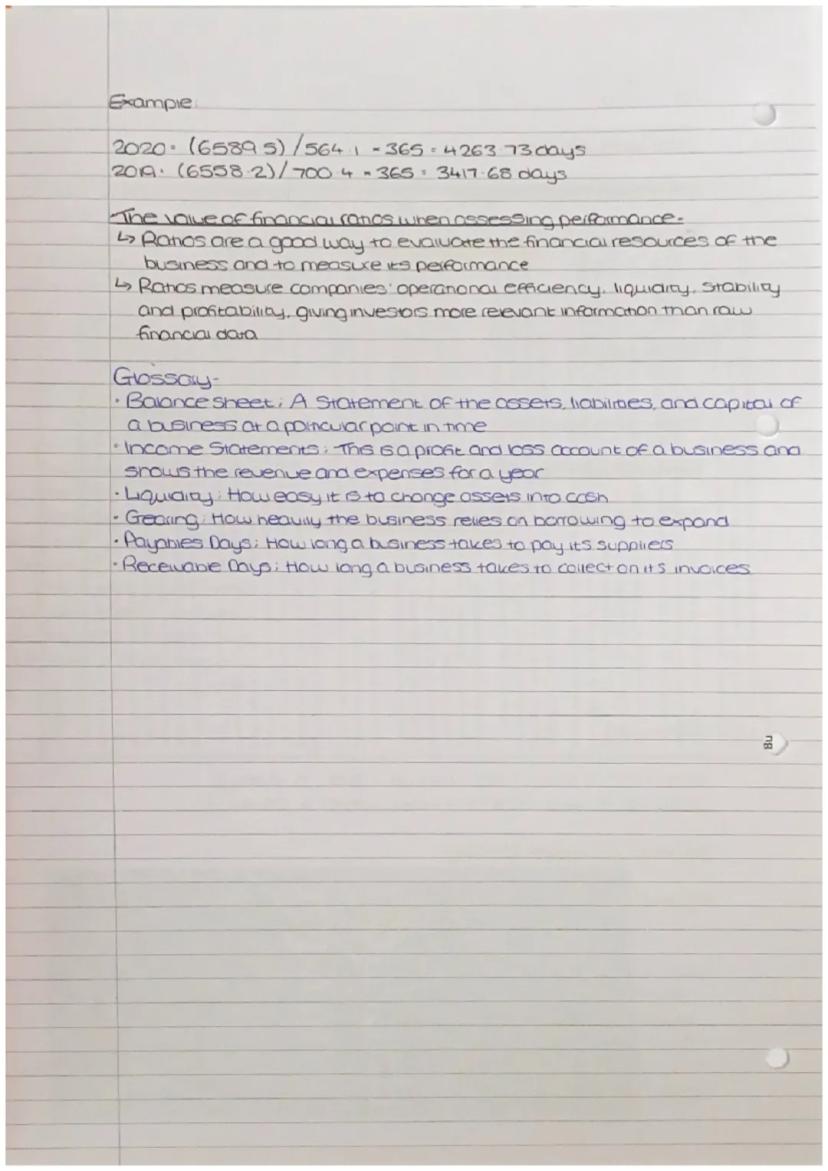 Example:
2020 - (6589.5) / 564.1 - 365 = 4263.73 days
2019 - (6558.2) / 700.4 - 365 = 3417.68 days
The value of financial ratios when assessing performance -
↳ Ratios are a good way to evaluate the financial resources of the
business and to measure its performance
↳ Ratios measure companies' operational efficiency, liquidity, stability
and profitability, giving investors more relevant information than raw
financial data
Glossary -
• Balance sheet: A statement of the assets, liabilities, and capital of
a business at a particular point in time
• Income Statements: This is a profit and loss account of a business and
shows the revenue and expenses for a year
• Liquidity: How easy it is to change assets into cash
• Gearing: How heavily the business relies on borrowing to expand
• Payables Days: How long a business takes to pay its suppliers
• Receivable Days: How long a business takes to collect on its invoices
BU